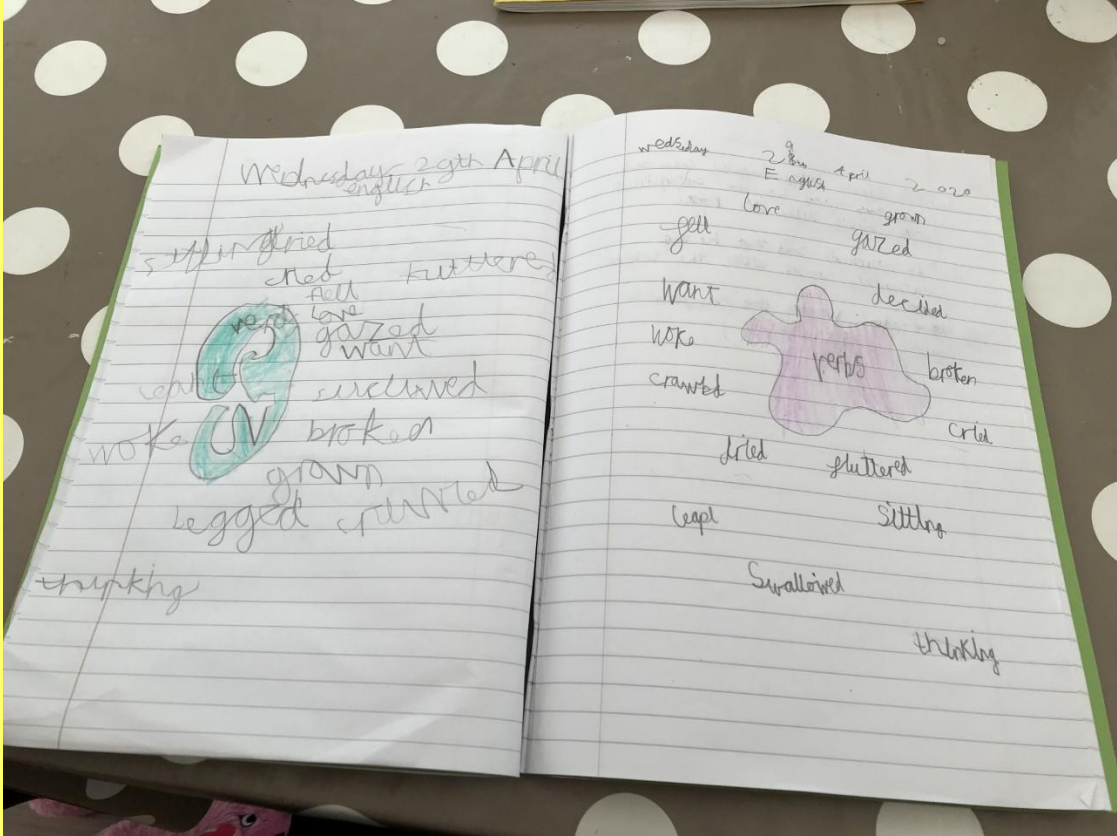 Wednesday 29th April
english
sitting dried
cried fluttered
fell
verb love
gazed
want
leapt
woke broken
grown
Legged crawled
thinking
wedseday 29th April 2020
English
love grown
fell gazed
want decided
woke verbs broken
crawled
cried
dried fluttered
leapt sitting
Swallowed
thinking